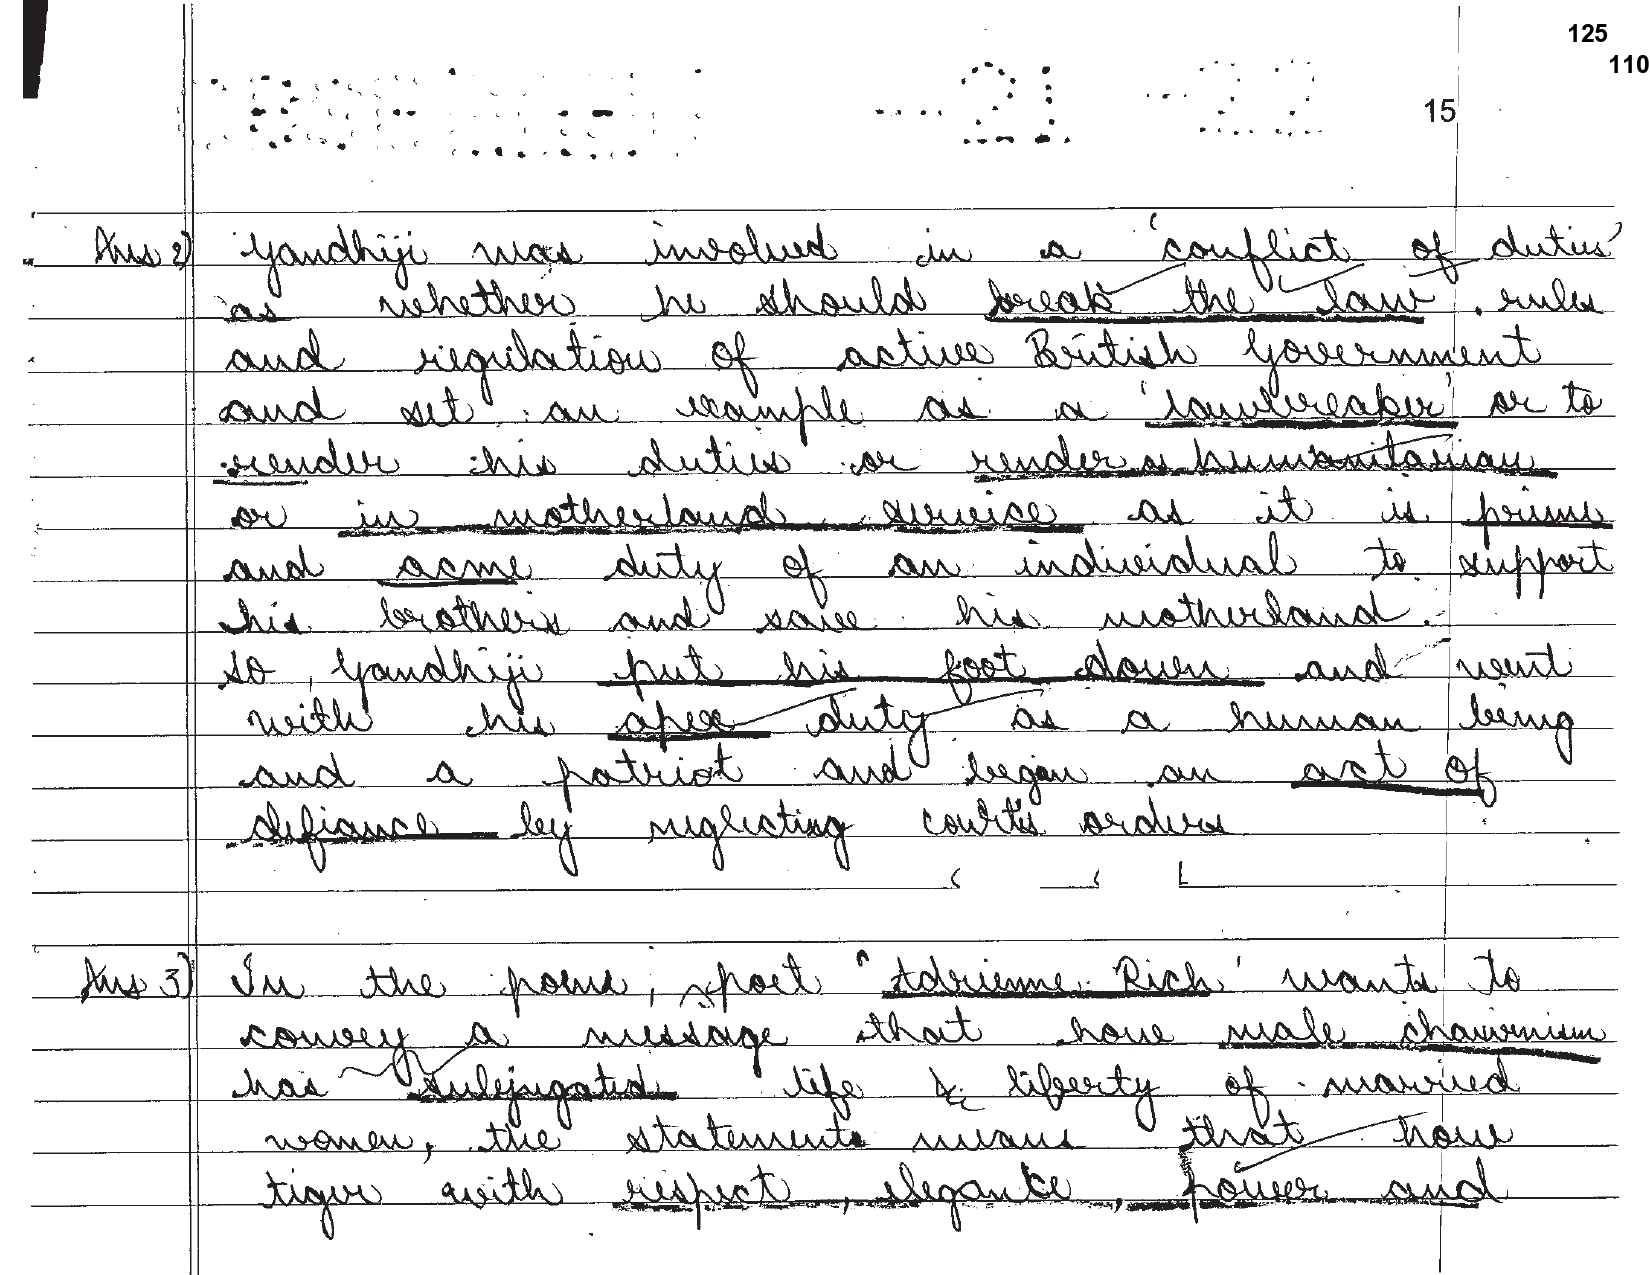 125
110
15
Ans 2) Gandhiji was involved in a 'conflict of duties'
as whether he should break the law . rules
and regulation of active British Government
and set an example as a 'lawbreaker' or to
render his duties or render a humanitarian
or in motherland service as it is prime
and acme duty of an individual to support
his brothers and save his motherland.
so, Gandhiji put his foot down and went
with his apex duty as a human being
and a patriot and began an act of
defiance by neglecting court's orders
Ans 3) In the poem, poet 'Adrienne Rich' wants to
convey a message that how male chauvnism
has subjugated life & liberty of married
women, the statements means that how
tiger with respect, elegance, power and